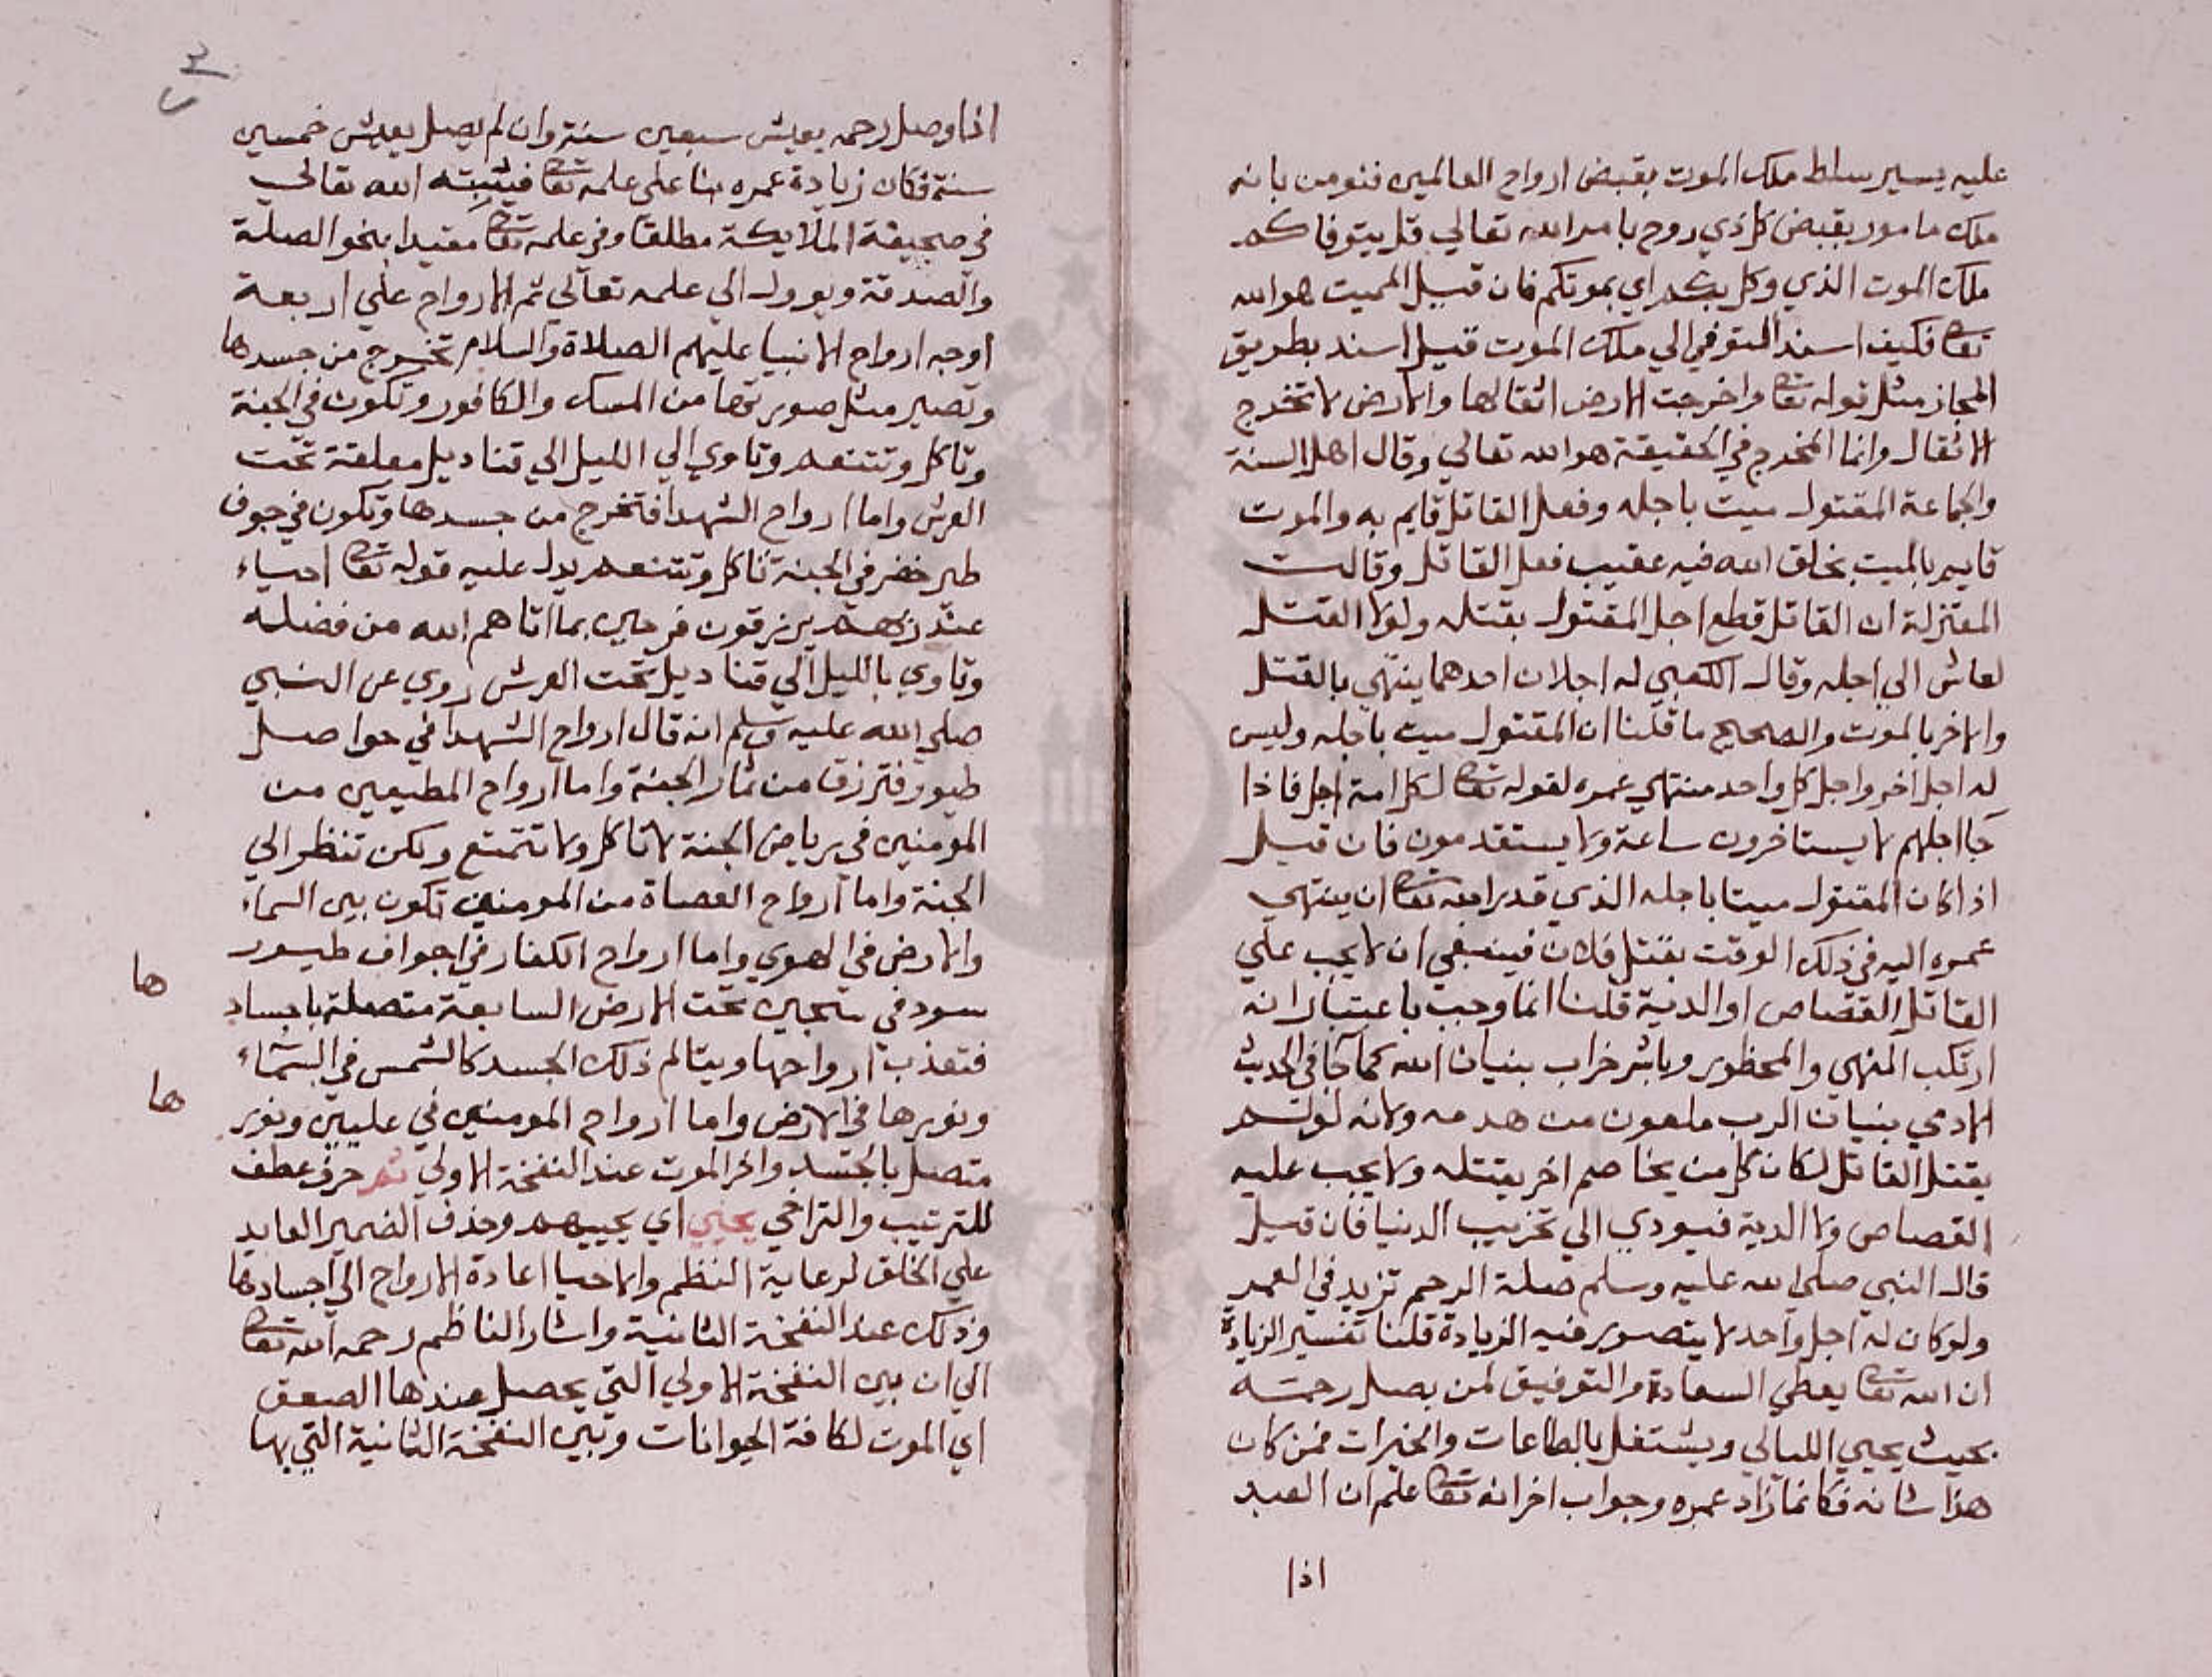 عليه يسير سلط ملك الموت بقبض ارواح العالمين فنومن بانه
ملك مامور بقبض كل ذي روح بامر الله تعالي قل يتوفاكم
ملك الموت الذي وكل بكم اي بموتكم فان قيل المميت هو الله
تعا فكيف اسند التوفي الي ملك الموت قيل اسند بطريق
المجاز مثل قوله تعا واخرجت الارض اثقالها والارض لا تخرج
الاثقال وانما المخرج في الحقيقة هو الله تعالي وقال اهل السنة
والجماعة المقتول ميت باجله وفعل القاتل قايم به والموت
قايم بالميت بخلق الله فيه عقيب فعل القاتل وقالت
المعتزلة ان القاتل قطع اجل المقتول بقتله ولولا القتل
لعاش الي اجله وقال الكعبي له اجلان احدهما ينتهي بالقتل
والاخر بالموت والصحيح ما قلنا ان المقتول ميت باجله وليس
له اجل اخر واجل كل واحد منتهي عمره لقوله تعا لكل امة اجل فاذا
جا اجلهم لا يستاخرون ساعة ولا يستقدمون فان قيل
اذا كان المقتول ميتا باجله الذي قدر الله تعا ان ينتهي
عمره اليه في ذلك الوقت بقتل فلان فينبغي ان لا يجب علي
القاتل القصاص او الدية قلنا انما وجب باعتبار انه
ارتكب المنهي والمحظور وباشر خراب بنيان الله كما جا في الحديث
الادمي بنيان الرب ملعون من هدمه ولانه لو لم
يقتل القاتل لكان كل من يخاصم اخر يقتله ولا يجب عليه
القصاص ولا الدية فيودي الي تخريب الدنيا فان قيل
قال النبي صلي الله عليه وسلم صلة الرحم تزيد في العمر
ولو كان له اجل واحد لا يتصور فيه الزيادة قلنا تفسير الزيادة
ان الله تعا يعطي السعادة والتوفيق لمن يصل رحمه
بحيث يحيي الليالي ويشتغل بالطاعات والخيرات فمن كان
هذا شانه فكانما زاد عمره وجواب اخر انه تعا علم ان العبد
اذا
اذا وصل رحمه يعيش سبعين سنة وان لم يصل يعيش خمسين
سنة فكان زيادة عمره بنا علي علمه تعا فيثبته الله تعالي
في صحيفة الملايكة مطلقا وفي علمه تعا مقيدا بنحو الصلة
والصدقة ويوول الي علمه تعالي ثم الارواح علي اربعة
اوجه ارواح الانبيا عليهم الصلاة والسلام تخرج من جسدها
وتصير مثل صورتها من المسك والكافور وتكون في الجنة
وتاكل وتتنعم وتاوي الي الليل الي قناديل معلقة تحت
العرش واما ارواح الشهدا فتخرج من جسدها وتكون في جوف
طير خضر في الجنة تاكل وتتنعم يدل عليه قوله تعا احياء
عند ربهم يرزقون فرحين بما اتاهم الله من فضله
وتاوي بالليل الي قناديل تحت العرش روي عن النبي
صلي الله عليه وسلم انه قال ارواح الشهدا في حواصل
طيور فترزق من ثمار الجنة واما ارواح المطيعين من
المومنين في رياض الجنة لا تاكل ولا تتمتع ولكن تنظر الي
الجنة واما ارواح العصاة من المومنين تكون بين السماء
والارض في الهوي واما ارواح الكفار في اجواف طيور
سود في سجين تحت الارض السابعة متصلة باجساد
ها
فتعذب ارواحها ويتالم ذلك الجسد كالشمس في السماء
ونورها في الارض واما ارواح المومنين في عليين ونور
ها
متصل بالجسد واخر الموت عند النفخة الاولي ثم حرف عطف
للترتيب والتراخي يحيي اي يحييهم وحذف الضمير العايد
علي الخلق لرعاية النظم والاحيا اعادة الارواح الي اجسادها
وذلك عند النفخة الثانية واشار الناظم رحمه الله تعا
الي ان بين النفخة الاولي التي يحصل عندها الصعق
اي الموت لكافة الحيوانات وبين النفخة الثانية التي بها